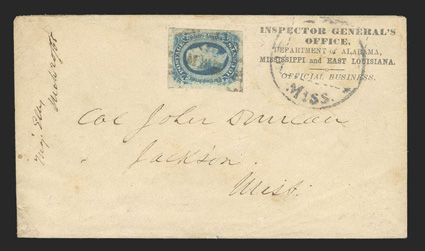 INSPECTOR GENERAL'S
OFFICE,
DEPARTMENT of ALABAMA,
MISSISSIPPI and EAST LOUISIANA.
OFFICIAL BUSINESS.
MISS.
Col John Duncan
Jackson
Miss.